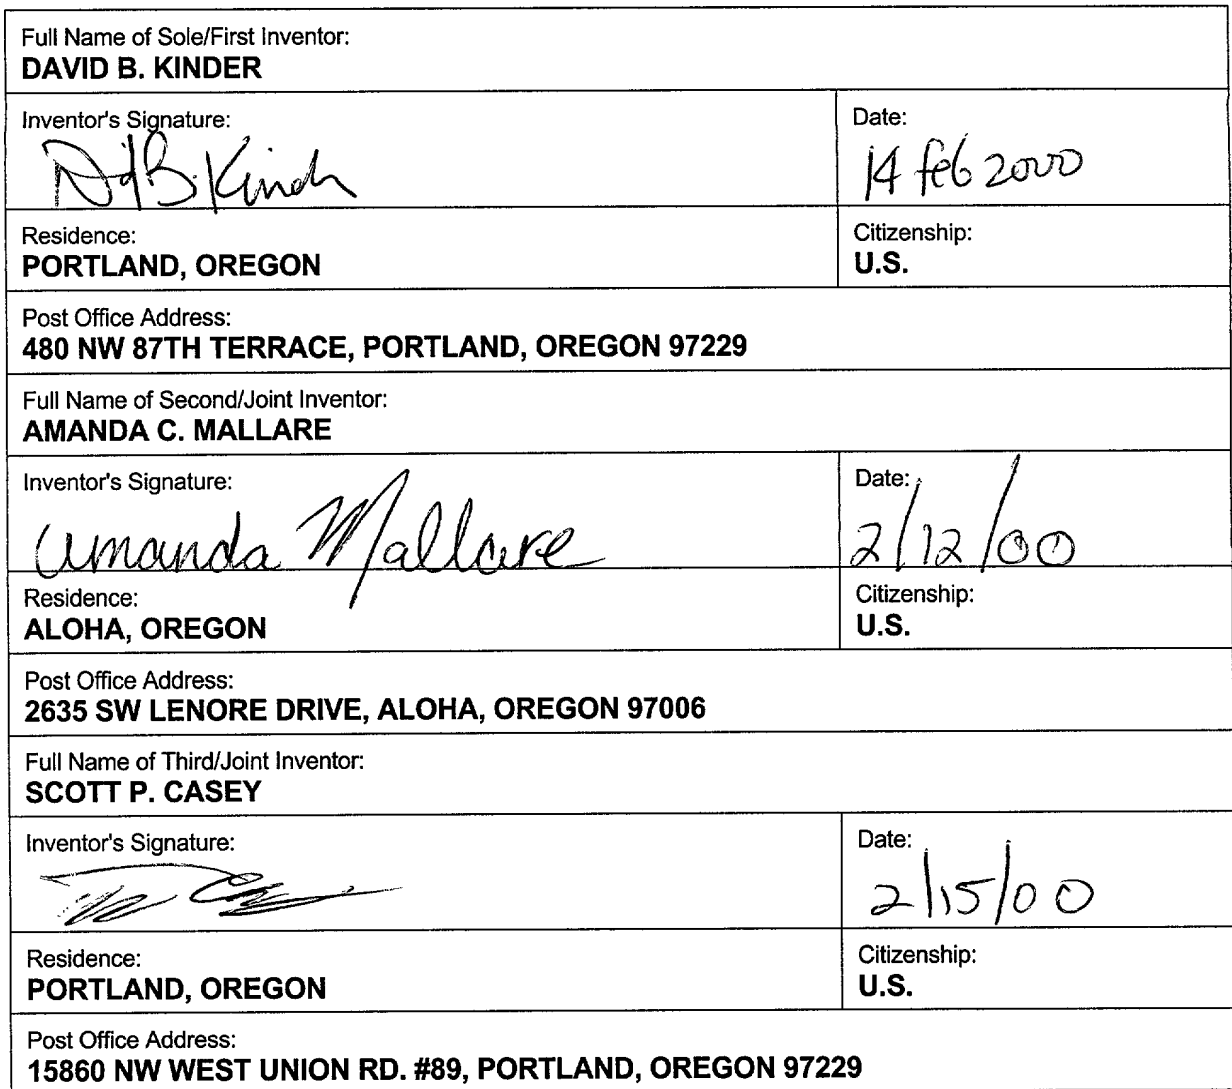 Full Name of Sole/First Inventor:
DAVID B. KINDER
Inventor's Signature:
Date:
D B. Kinder
14 feb 2000
Residence:
Citizenship:
PORTLAND, OREGON
U.S.
Post Office Address:
480 NW 87TH TERRACE, PORTLAND, OREGON 97229
Full Name of Second/Joint Inventor:
AMANDA C. MALLARE
Inventor's Signature:
Date:
Amanda Mallare
2/12/00
Residence:
Citizenship:
ALOHA, OREGON
U.S.
Post Office Address:
2635 SW LENORE DRIVE, ALOHA, OREGON 97006
Full Name of Third/Joint Inventor:
SCOTT P. CASEY
Inventor's Signature:
Date:
2/15/00
Residence:
Citizenship:
PORTLAND, OREGON
U.S.
Post Office Address:
15860 NW WEST UNION RD. #89, PORTLAND, OREGON 97229